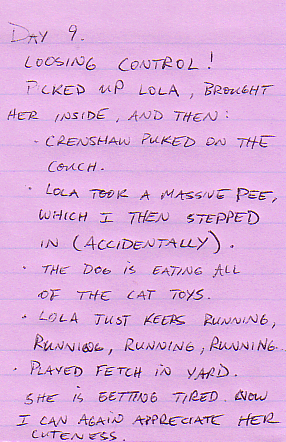 DAY 9.
LOOSING CONTROL!
PICKED UP LOLA, BROUGHT
HER INSIDE, AND THEN:
· CRENSHAW PUKED ON THE
COUCH.
· LOLA TOOK A MASSIVE PEE,
WHICH I THEN STEPPED
IN (ACCIDENTALLY).
· THE DOG IS EATING ALL
OF THE CAT TOYS.
· LOLA JUST KEEPS RUNNING,
RUNNING, RUNNING, RUNNING...
· PLAYED FETCH IN YARD.
SHE IS GETTING TIRED. NOW
I CAN AGAIN APPRECIATE HER
CUTENESS.